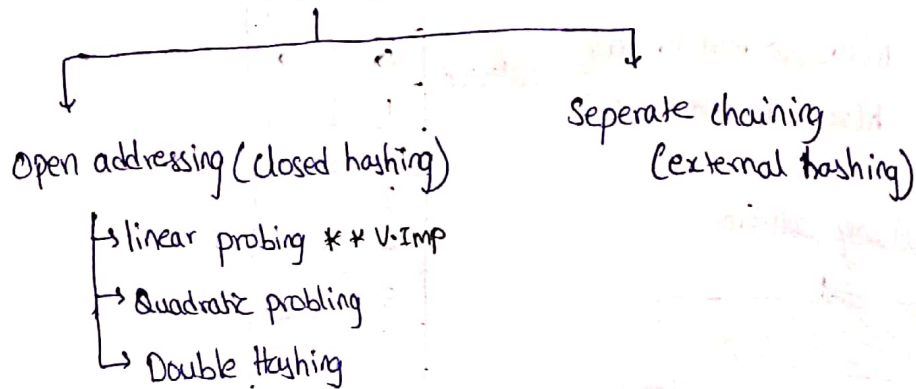 Open addressing (closed hashing)
↳ linear probing ** V.Imp
→ Quadratic probling
↳ Double Hashing
Seperate chaining
(external hashing)